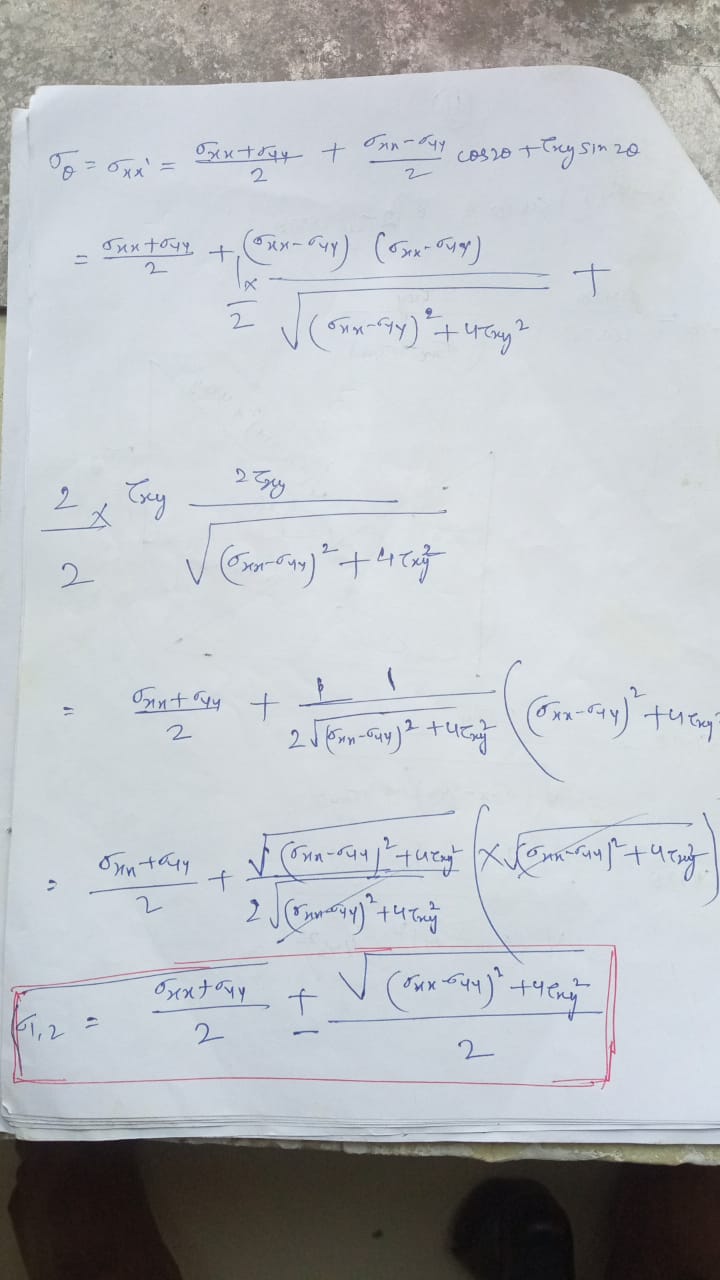 σθ = σxx' = σxx+σyy/2 + σxx-σyy/2 cos2θ + τxy sin 2θ
= σxx+σyy/2 + 1/2 × (σxx-σyy) (σxx-σyy)/√(σxx-σyy)²+4τxy² +
2/2 × τxy 2τxy/√(σxx-σyy)²+4τxy²
= σxx+σyy/2 + 1/2√(σxx-σyy)²+4τxy² ((σxx-σyy)²+4τxy²
= σxx+σyy/2 + √(σxx-σyy)²+4τxy²/2√(σxx-σyy)²+4τxy² (×√(σxx-σyy)²+4τxy²)
σ1,2 = σxx+σyy/2 ± √(σxx-σyy)²+4τxy²/2